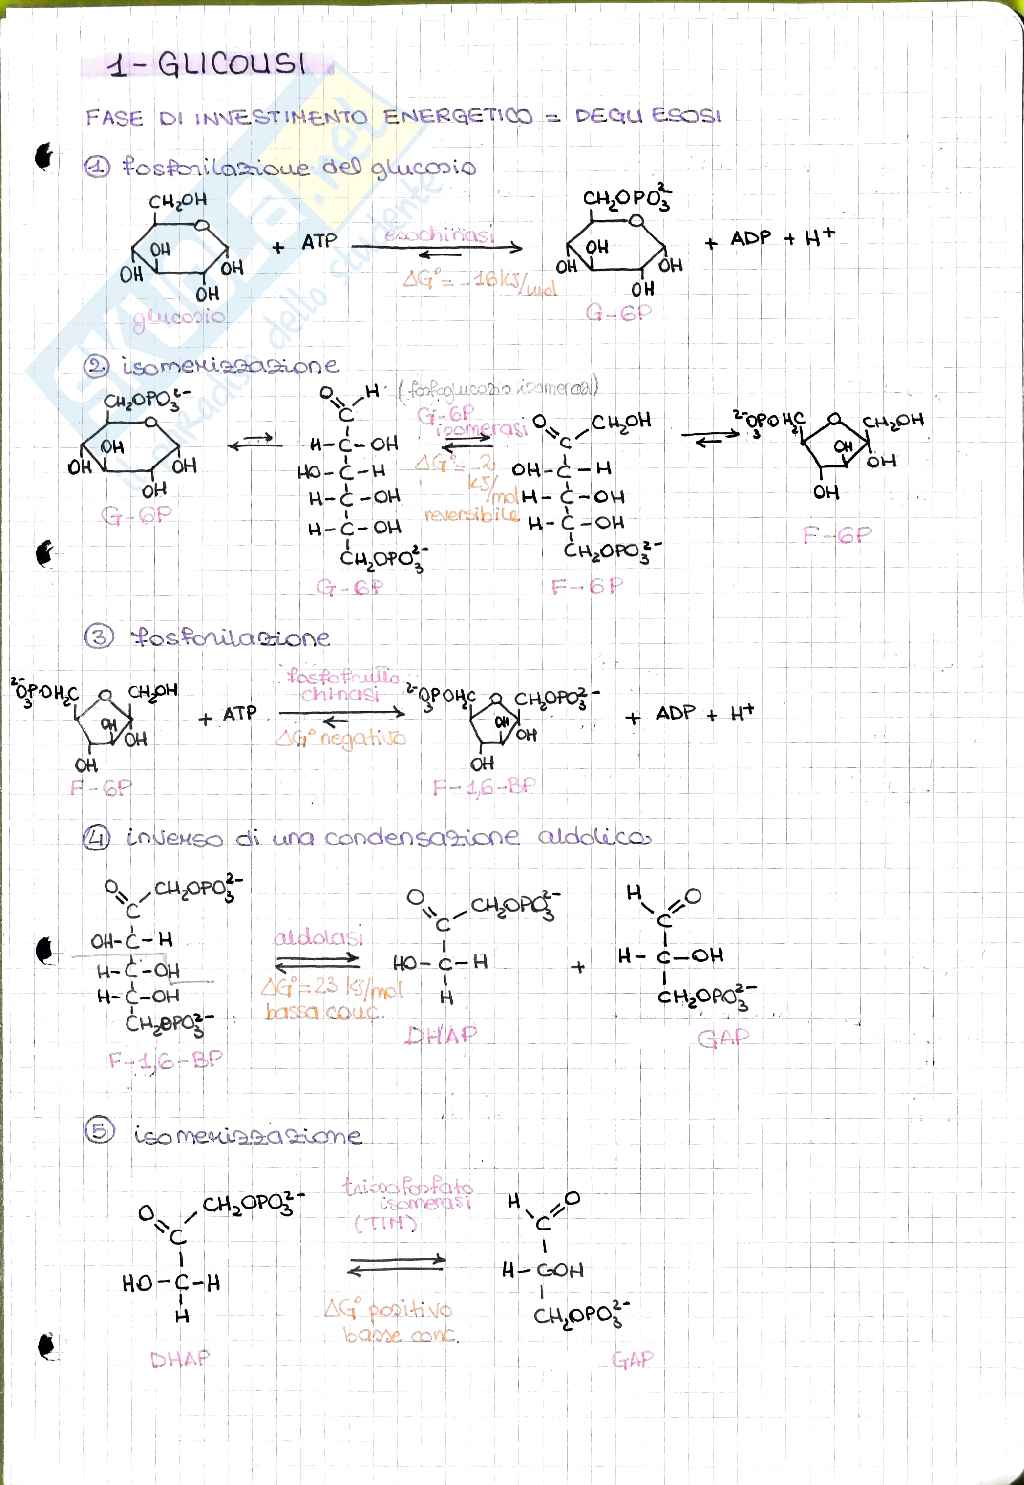 1- GLICOLISI
FASE DI INVESTIMENTO ENERGETICO = DEGLI ESOSI
① fosforilazione del glucosio
CH₂OH
OH
OH OH
OH
glucosio
+ ATP
esochinasi
ΔG°= -16 kJ/mol
CH₂OPO₃²⁻
OH
OH OH
OH
G-6P
+ ADP + H⁺
② isomerizzazione
CH₂OPO₃²⁻
OH
OH OH
OH
G-6P
O H
C
H-C-OH
HO-C-H
H-C-OH
H-C-OH
CH₂OPO₃²⁻
G-6P
(fosfoglucosio isomerasi)
G-6P
isomerasi
ΔG°= -2
kJ/mol
reversibile
O CH₂OH
C
OH-C-H
H-C-OH
H-C-OH
CH₂OPO₃²⁻
F-6P
²⁻O₃POH₂C O CH₂OH
OH
OH
OH
F-6P
③ fosforilazione
²⁻O₃POH₂C O CH₂OH
OH
OH
OH
F-6P
+ ATP
fosfofrutto
chinasi
ΔG° negativo
²⁻O₃POH₂C O CH₂OPO₃²⁻
OH
OH
OH
F-1,6-BP
+ ADP + H⁺
④ inverso di una condensazione aldolica
O CH₂OPO₃²⁻
C
OH-C-H
H-C-OH
H-C-OH
CH₂OPO₃²⁻
F-1,6-BP
aldolasi
ΔG°=23 kJ/mol
bassa conc.
O CH₂OPO₃²⁻
C
HO-C-H
H
DHAP
+
H O
C
H-C-OH
CH₂OPO₃²⁻
GAP
⑤ isomerizzazione
O CH₂OPO₃²⁻
C
HO-C-H
H
DHAP
triosofosfato
isomerasi
(TIM)
ΔG° positivo
basse conc.
H O
C
H-COH
CH₂OPO₃²⁻
GAP